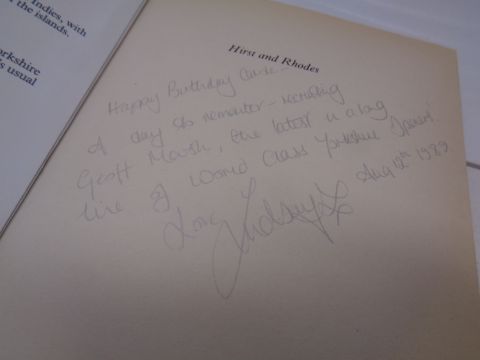 Indies, with
of the islands.
orkshire
's usual
Hirst and Rhodes
Happy Birthday
A day to remember - recruiting
Geoff Marsh, the latest in a long
line of World Class Yorkshire
Aug 12th 1989
Love Lindsay